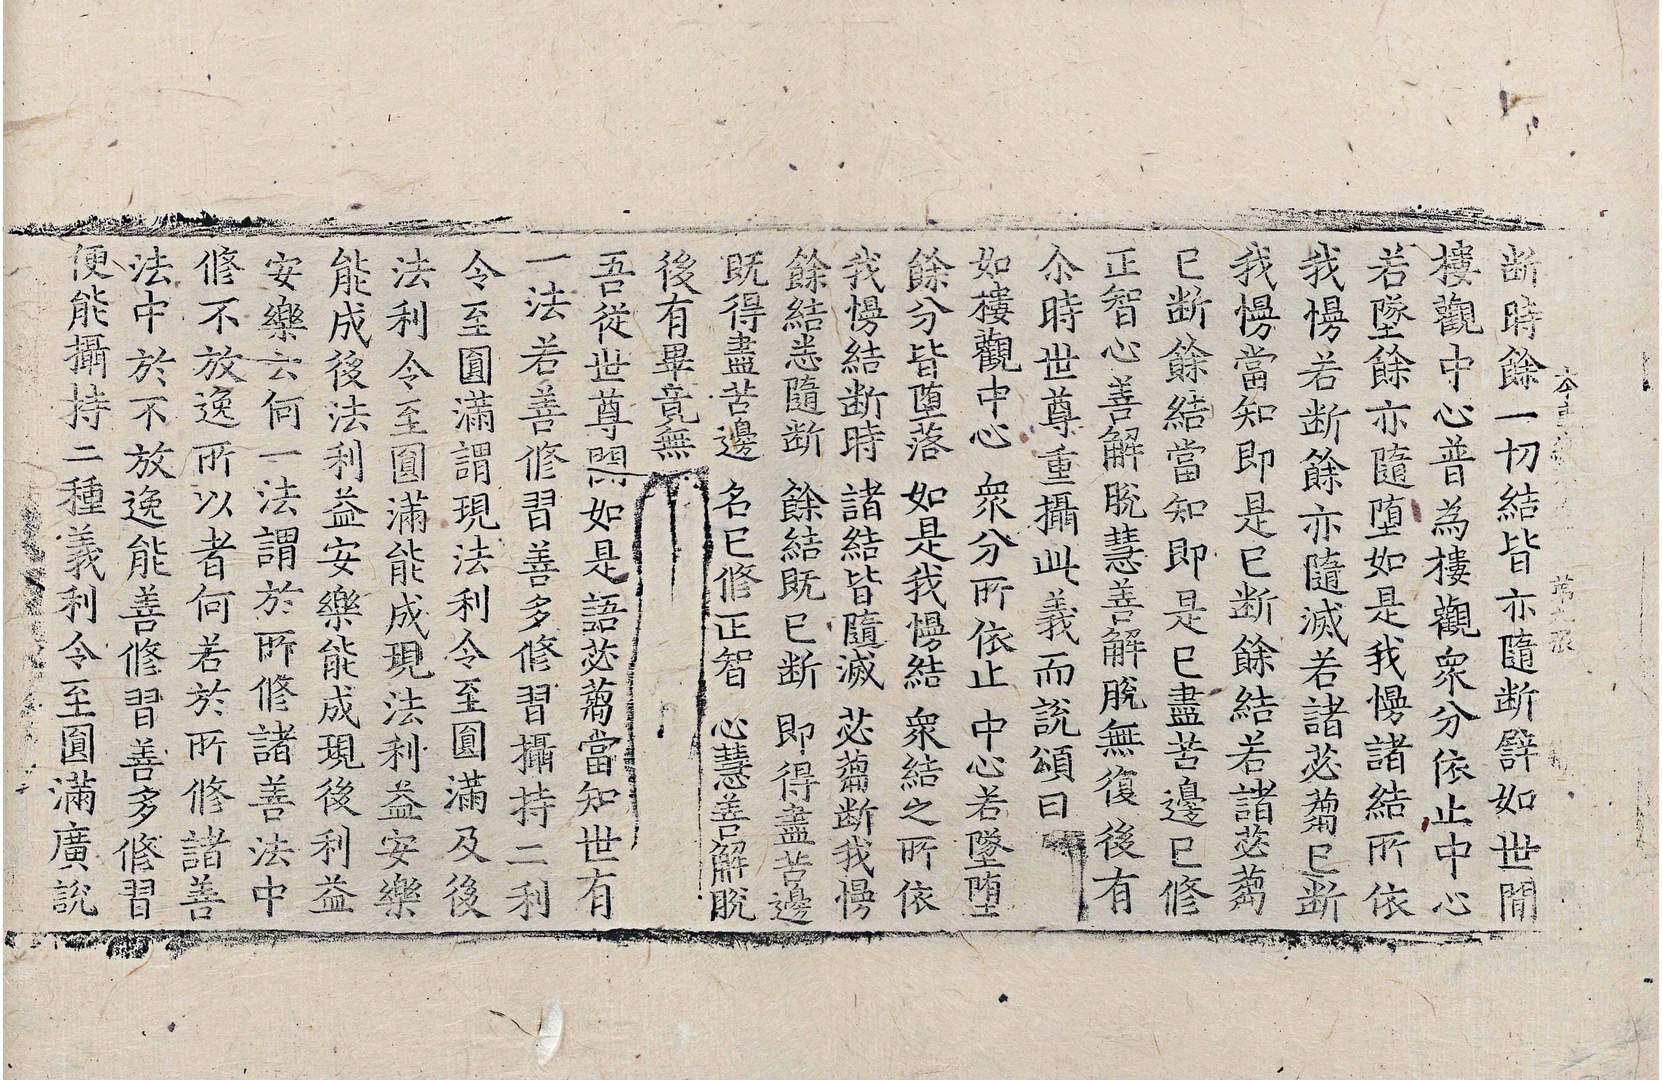 断時餘一切結皆亦隨断譬如世間
樓觀中心普為樓觀衆分依止中心
若墜餘亦隨堕如是我慢諸結所依
我慢若断餘亦隨滅若諸苾蒭已断
我慢當知即是已断餘結若諸苾蒭
已断餘結當知即是已盡苦邊已修
正智心善解脫慧善解脫無復後有
尒時世尊重攝此義而說頌曰
如樓觀中心 衆分所依止 中心若墜堕
餘分皆堕落 如是我慢結 衆結之所依
我慢結断時 諸結皆隨滅 苾蒭断我慢
餘結悉隨断 餘結既已断 即得盡苦邊
既得盡苦邊 名已修正智 心慧善解脫
後有畢竟無
吾從世尊聞如是語苾蒭當知世有
一法若善修習善多修習攝持二利
令至圓滿謂現法利令至圓滿及後
法利令至圓滿能成現法利益安樂
能成後法利益安樂能成現後利益
安樂云何一法謂於所修諸善法中
修不放逸所以者何若於所修諸善
法中於不放逸能善修習善多修習
便能攝持二種義利令至圓滿廣說